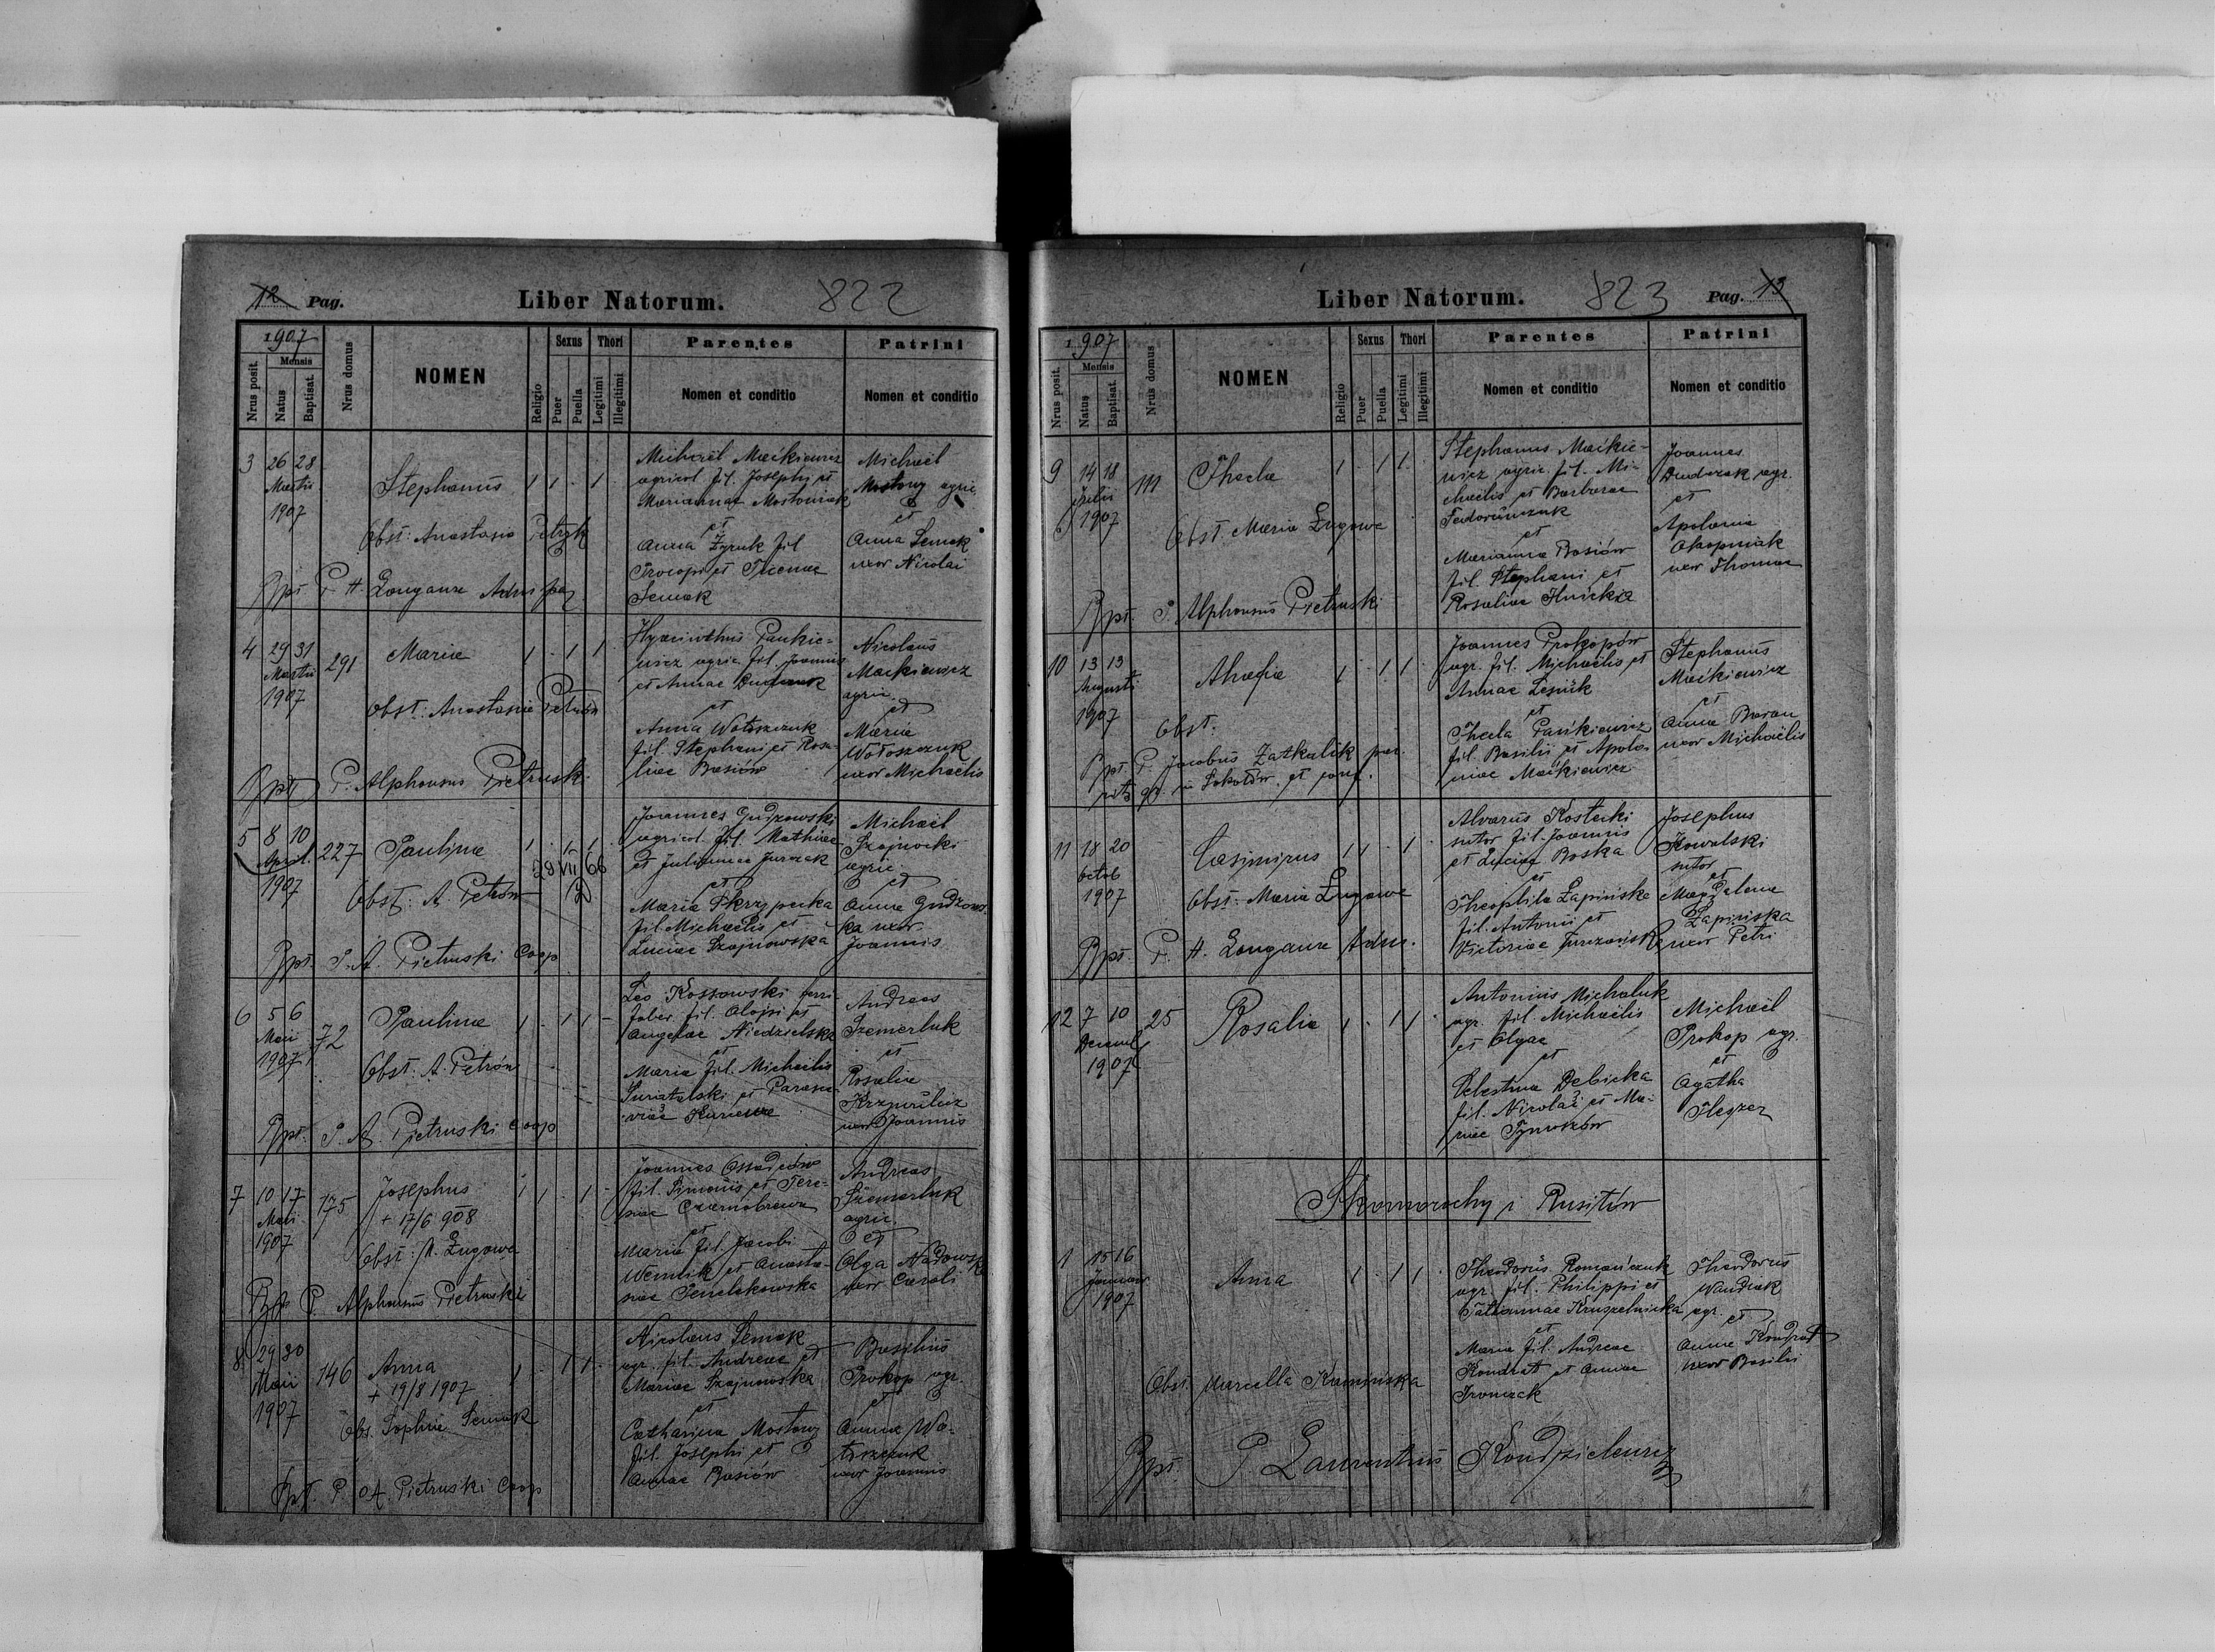 12 Pag. Liber Natorum. 822
1907
Mensis
Nrus posit.
Natus
Baptisat.
Nrus domus
NOMEN
Religio
Sexus
Puer
Puella
Thori
Legitimi
Illegitimi
Parentes
Nomen et conditio
Patrini
Nomen et conditio
3 26 28
Martii
1907
Stephanus
Obst: Anastasia Petryk
Bpt. P. H. Longanx Adm
Michaël Maćkiewicz
agricol. fil. Josephi et
Mariannae Mostoniak
et
Anna Zyruk fil
Procopi et
Semak
Michaël
Mostowy agric.
et
Anna Semak
uxor Nicolai
4 29 31
Martii
1907
291
Maria
Obst: Anastasia Petrów
Bpt P. Alphonsus Pietruski
Hyacinthus Pankie-
wicz agric. fil. Joannis
et Annae
et
Anna Wołoszczuk
fil. Stephani et Rosa-
liae Basiów
Nicolaus
Maćkiewicz
agric.
et
Maria
Wołoszczuk
uxor Michaëlis
5 8 10
April.
1907
227
Paulina
28 VII 66
Obst: A. Petrów
Bpt. P. A. Pietruski Coop
Joannes Gudzowski
agricol. fil. Mathiae
et Juliannae Jurczak
et
Maria Skrzypecka
fil. Michaëlis et
Luciae Szajnowska
Michaël
Szajnocki
agric
et
Anna Gudzows-
ka uxor
Joannis
6 5 6
Maii
1907
72
Paulina
Obst. A. Petrów
Bpt. P. A. Pietruski Coop
Leo Kossowski ferri-
faber. fil. Aloisi et
Angelae Niedzielska
et
Maria fil. Michaëlis
et Parasce-
viae
Andreas
Szemerluk
et
Rosalia
uxor Joannis
7 10 17
Maii
1907
175
Josephus
+ 17/6 908
Obst: M. Ługowa
Bpt P. Alphonsus Pietruski
Joannes
fil. Simonis et Tere-
siae
et
Maria fil. Jacobi
et Anasta-
siae
Andreas
Szemerluk
agric.
et
Olga
uxor Caroli
8 29 30
Maii
1907
146
Anna
+ 19/8 1907
Obs. Sophia Semak
Bpt. P. A. Pietruski Coop
Nicolaus Semak
agr. fil. Andreae et
Mariae Szajnowska
et
Catharina Mostowy
fil. Josephi et
Annae Basiów
Basilius
Prokop agr.
et
Anna Wo-
łoszczuk
uxor Joannis
Liber Natorum. 823 Pag. 13
1907
Mensis
Nrus posit.
Natus
Baptisat.
Nrus domus
NOMEN
Religio
Sexus
Puer
Puella
Thori
Legitimi
Illegitimi
Parentes
Nomen et conditio
Patrini
Nomen et conditio
9 14 18
Julii
1907
111
Thecla
Obst. Maria Ługowa
Bpt. P. Alphonsus Pietruski
Stephanus Maćkie-
wicz agric. fil. Mi-
chaëlis et Barbarae
Fedorünczuk
et
Marianna Basiów
fil. Stephani et
Rosaliae Ilnicka
Joannes
Dudczak agr.
et
Apolonia
Okopniak
uxor Thomae
10 13 13
Augusti
1907
Ahafia
Obst.
Bpt. P. Jacobus Zatkalik par.
rit. gr. in Sokołów
Joannes Prokopów
agr. fil. Michaëlis et
Annae Lesiük
et
Thecla Pańkiewicz
fil. Basilii et Apolo-
niae Maćkiewicz
Stephanus
Maćkiewicz
et
Anna Baran
uxor Michaëlis
11 18 20
Octob
1907
Casimirus
Obst. Maria Ługowa
Bpt P. H. Longanx Adm.
Alvarus Kostecki
sutor fil. Joannis
et Luciae Boska
et
Theophila Łapińska
fil. Antonii et
Victoriae
Josephus
Kowalski
sutor
et
Magdalena
Łapińska
uxor Petri
12 7 10
Decemb
1907
25
Rosalia
Antonius Michaluk
agr. fil Michaëlis
et Olgae
et
Celestina Debicka
fil. Nicolai et Ma-
riae
Michaël
Prokop agr.
et
Agatha
Skomorochy i Rusiłów
1 15 16
Januar
1907
Anna
Obst. Marcella Kaminska
Bpt. P. Laurentius Kondzielewicz
Theodorus Romańczuk
agr. fil. Philippi et
Tatiannae Kruszelnicka
et
Maria fil. Andreae
Kondrat et Annae
Theodorus
Wandiak
agr. et
Anna Kondrat
uxor Basilii